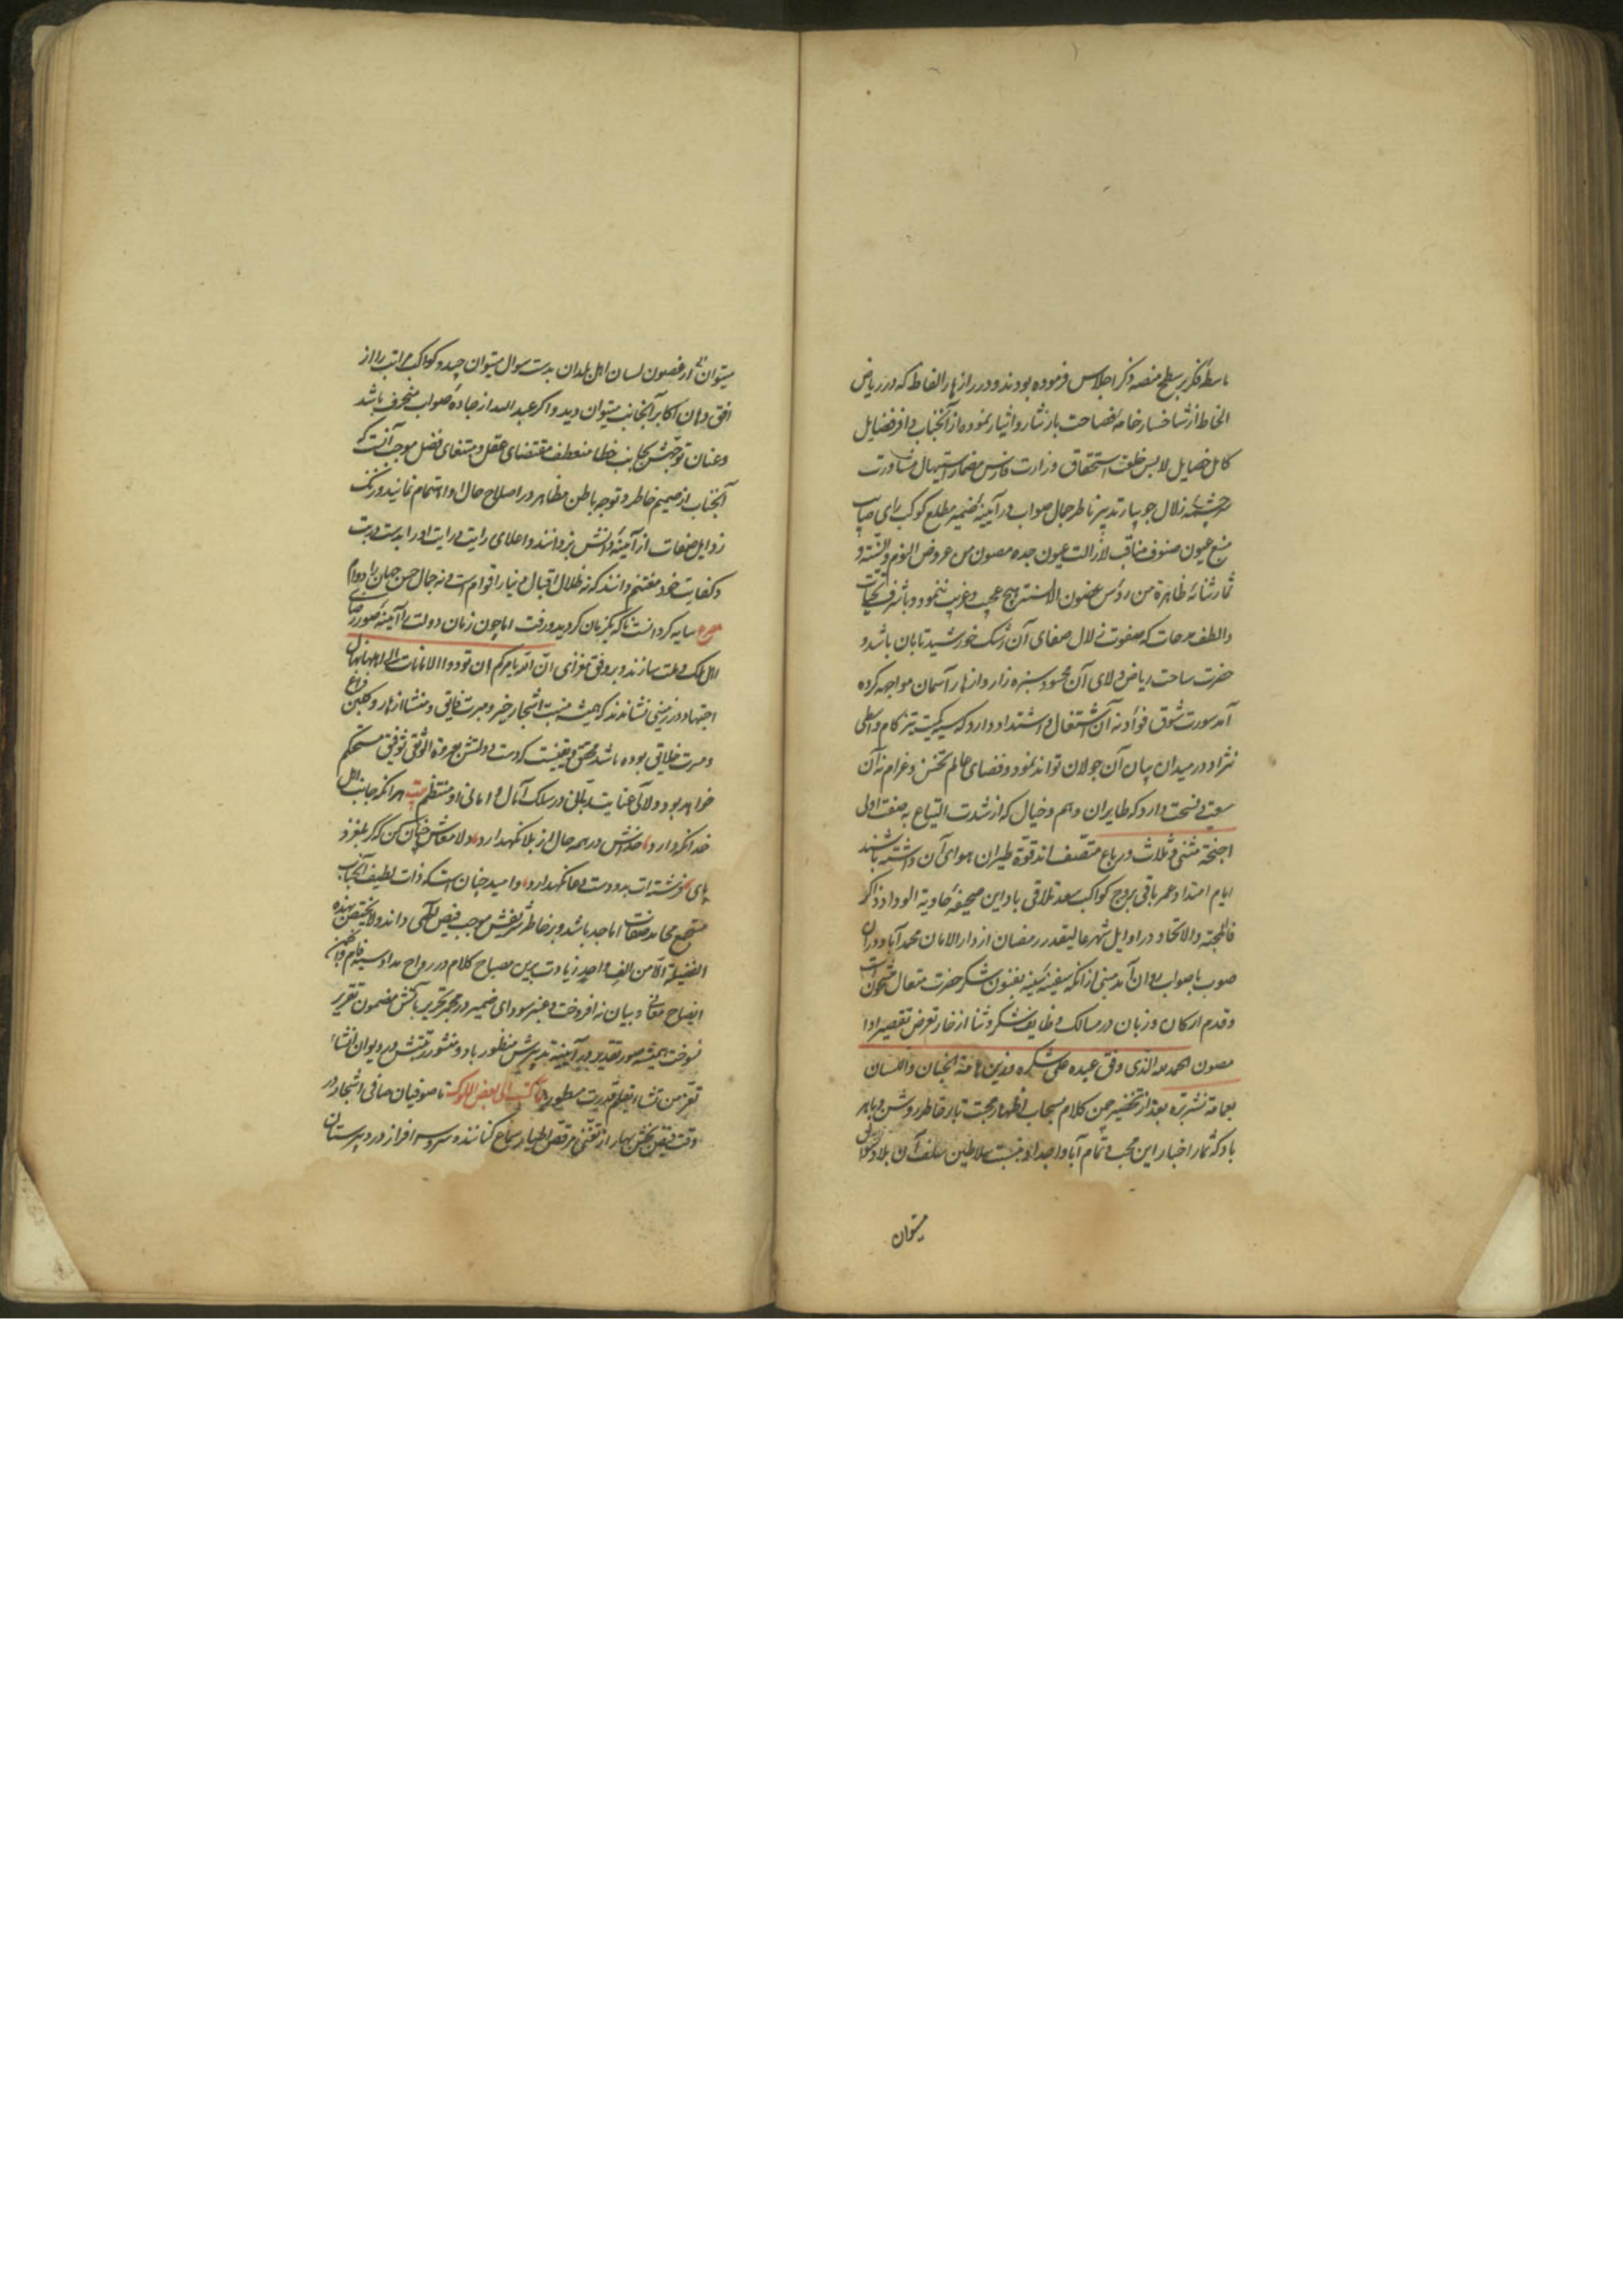 باسطه فکر بر سطح منصه ذکر اجلاس فرموده بودند و درر ازهار الفاظ که در ریاض
از شاخسار خامه فصاحت بار نثار و ایثار نموده از آنجناب وافر فضایل
کامل خصایل لابس خلعت استحقاق وزارت فارس مضمار استیهال مشاورت
سرچشمه زلال جویبار تدبیر ناظر جمال صواب در آیینه ضمیر مطلع کوکب رای صایب
منبع عیون صنوف مناقب لازالت عیون جده مصون من عروض النوم والسنة و
ثمار ثنائه ظاهرة من رؤس غصون الالسنة بنهج عجیب و غریب ننمود و باشرف تحیات
والطف مدحات که صفوت زلال صفای آن رشک خورشید تابان باشد و
حضرت ساحت ریاض ولای آن محسود سبزه زار و ازهار آسمان مواجهه کرده
آمد سورت شوق فؤاد نه آن اشتعال و اشتداد دارد که سیه کمیت تیز کام واسطی
نژاد در میدان بیان آن جولان تواند نمود و فضای عالم تحنن و غرام نه آن
سعت و فسحت دارد که طایران وهم و خیال که از شدت التیاع به صفت اولی
اجنحة مثنی و ثلاث و رباع متصف اند قوة طیران هوای آن داشته باشند
ایام امتداد عمر باقی بروج کواکب سعد تلاقی باد این صحیفه حاویة الوداد ذاکر
المحبة والاتحاد در اوایل شهر عالیقدر رمضان از دار الامان محمد آباد در آن
صوب باصواب روان آمد مبنی از آنکه سفینه سینه بفنون شکر حضرت متعال مشحون است
و قدم ارکان و زبان در مسالک وظایف شکر و ثنا از خار تعرض تقصیر ادا
مصون الحمد لله الذی وفق عبده علی شکره و زین هامة الجنان واللسان
بعمامة نشر بره بعد از تخضیر چمن کلام بسحاب اظهار محبت تبار خاطر روشن و باهر
باد که ثمار اخبار این محب و تمام آبا و اجداد او نسبت بسلاطین سلف آن بلاد
میتوان
میتوان از غصون لسان اهل بلدان بدست سوال میتوان چید و کواکب مراتب را از
افق دهان اکابر آنجانب میتوان دید و اگر عبدالله از جاده صواب منحرف باشد
و عنان توجهش بجانب خطا منعطف مقتضای عقل و مبتغای فضل موجب آنست که
آنجناب از صمیم خاطر و توجه باطن مظاهر در اصلاح حال او اهتمام نمانید و زنک
رذایل صفات از آینه دانش بزدانند و اعلای رایت درایت او را بدست تربت
و کفایت خود مغتنم دانند که نه ظلال اقبال دنیا را قوام است و نه جمال حسن جهان را دوام
مصرع سایه گردانست تا که یکزمان گردید و رفت اما چون زمان دولت را آیینه صور رضای
اهل ملک و ملت سازند و بر وفق مغزای ان الله یأمرکم ان تودوا الامانات الی اهلها نهال
اجتهاد در زمینی نشاندند که همیشه منبت اشجار خیر و مبرت فایق و منشا ازهار و گلبن فراغ
و مسرت خلایق بوده باشد محقق و یقینست که دست دولتش بعروة الوثقی توفیق مستحکم
خواهد بود و لآلی عنایت ربانی در سلک آمال و امانی او منتظم بیت هر آنکه جانب اهل
خدا نگه دارد خداش در همه حال از بلا نگهدارد دلا معاش چنان کن که گر بلغزد
پای فرشته ات بدو دست دعا نگهدارد و امید چنان است که ذات لطیف آنجناب
مستجمع محامد صفات اماجد باشد و بر خاطر شریفش موجب فیض الهی داند و لا یختص بهذه
الفضیلة الا من الف واحد زیادت برین مصباح کلام در رواح مداد سیه فام
ایضاح معانی و بیان نه افروخت و عنبر سودای ضمیر در مجمر تحریر بآتش مضمون تقریر
نسوخت همیشه صور تقدیر در آیینه تدبیرش منظور باد و منشور رتبتش در دیوان انشاء
تعز من تشاء بقلم قدرت مسطور مما کتب الی بعض الملوک تا صوفیان صافی اشجار در
وقت فیض بخش بهار از تغنی مرقص اطیار سماع کنانند و سرو سرافراز در دبیرستان